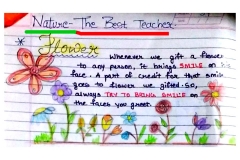 Nature - The Best Teacher.
Flower
Whenever we gift a flower
to any person, it brings SMILE on his
face. A part of credit for that smile
goes to flower we gifted. SO,
always TRY TO BRING SMILE on
the faces you greet.